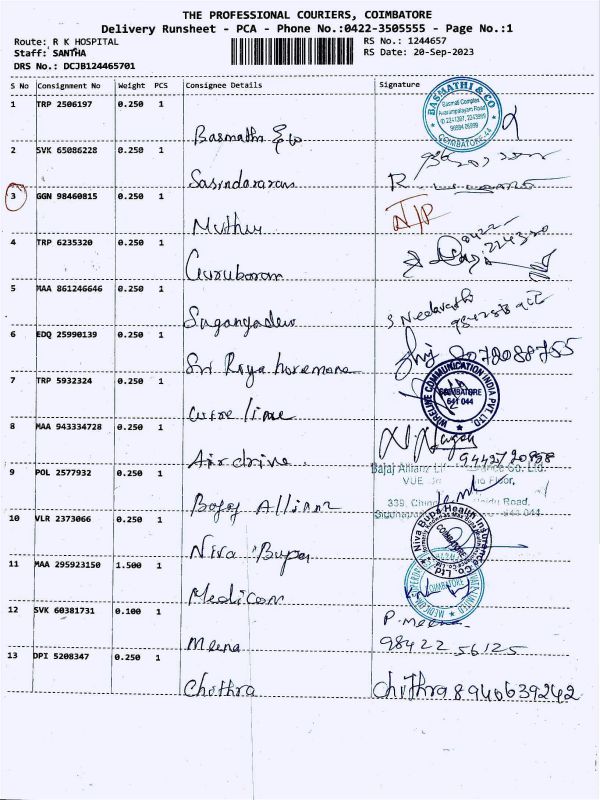 THE PROFESSIONAL COURIERS, COIMBATORE
Delivery Runsheet - PCA - Phone No.:0422-3505555 - Page No.:1
Route: R K HOSPITAL
RS No.: 1244657
Staff: SANTHA
RS Date: 20-Sep-2023
DRS No.: DCJB124465701
S No Consignment No Weight PCS Consignee Details Signature
1 TRP 2506197 0.250 1
BASMATHI & CO
Basmati Complex
COIMBATORE
Basmathi & co
2 SVK 65086228 0.250 1
3 GGN 98460815 0.250 1
N/P
Muthu
4 TRP 6235320 0.250 1
0422
Guruboram
5 MAA 861246646 0.250 1
6 EDQ 25990139 0.250 1
8072088755
Sri
7 TRP 5932324 0.250 1
WIRELINE COMMUNICATION INDIA PVT. LTD.
COIMBATORE
641 044
8 MAA 943334728 0.250 1
Air drive
9 POL 2577932 0.250 1
Bajaj Allianz Co. Ltd.
Floor,
339, Road,
Bajaj Allianz
10 VLR 2373066 0.250 1
Niva Bupa Health Insurance Co. Ltd
Niva Bupa
11 MAA 295923150 1.500 1
COIMBATORE
Medicom
12 SVK 60381731 0.100 1
P. Meena
Meena
98422 56125
13 DPI 5208347 0.250 1
Chithra
Chithra 8940639242